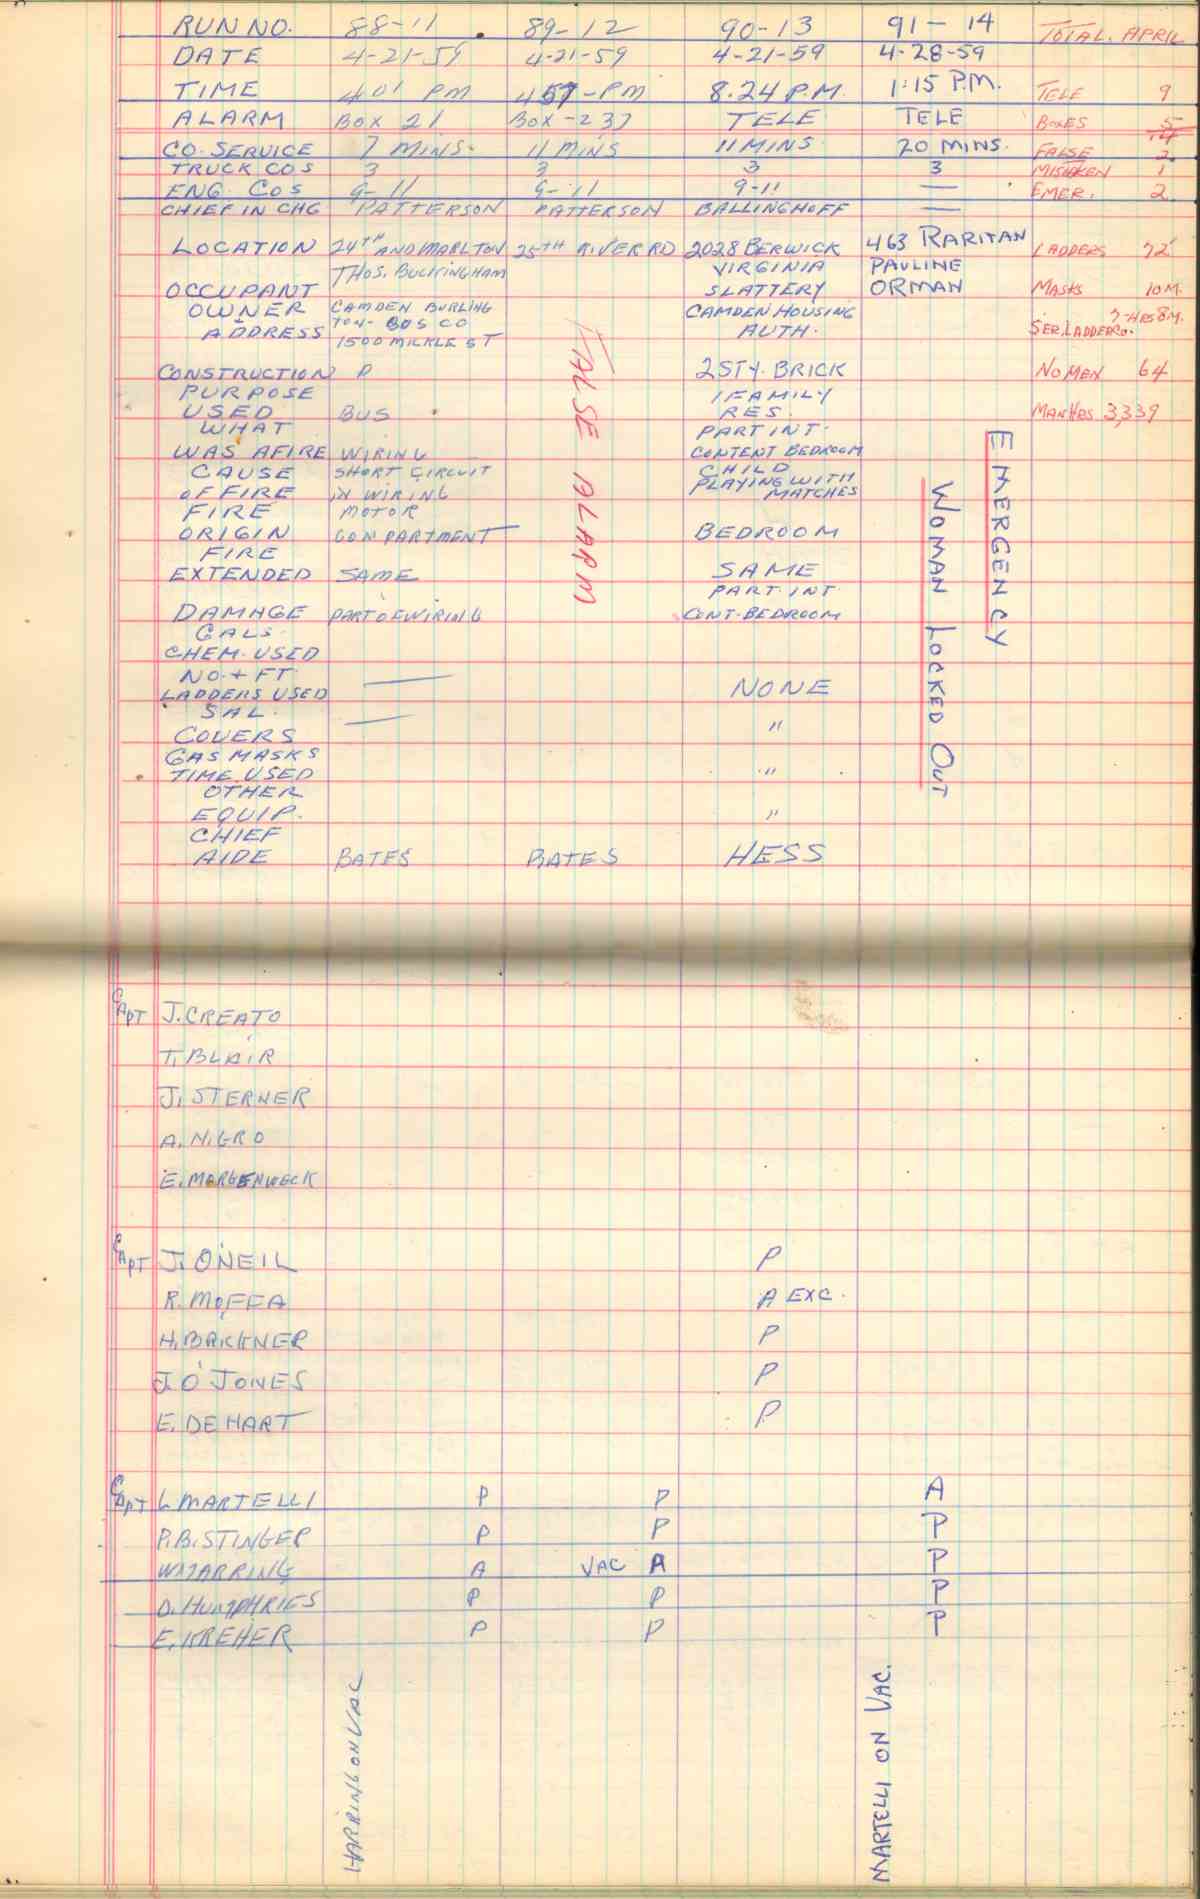 RUN NO. 88-11 89-12 90-13 91-14 TOTAL. APRIL
DATE 4-21-59 4-21-59 4-21-59 4-28-59
TIME 401 PM 457-PM 8.24 P.M. 1:15 P.M. TELE 9
ALARM BOX 21 BOX-237 TELE TELE BOXES 5
14
CO. SERVICE 7 MINS. 11 MINS 11 MINS 20 MINS. FALSE 2
TRUCK COS 3 3 3 3 MISTAKEN 1
ENG. COS 9-11 9-11 9-11 — EMER. 2
CHIEF IN CHG PATTERSON PATTERSON BALLINGHOFF —
LOCATION 24TH AND MARLTON 25TH RIVER RD 2028 BERWICK 463 RARITAN LADDERS 72'
THOS. BUCKINGHAM VIRGINIA PAULINE
OCCUPANT SLATTERY ORMAN MASKS 10M.
OWNER CAMDEN BURLING CAMDEN HOUSING
ADDRESS TON- BUS CO AUTH. SER. LADDER CO. 7-HRS 8M.
1500 MICKLE ST
CONSTRUCTION P 2 STY. BRICK NO MEN 64
PURPOSE 1 FAMILY
USED BUS RES. MAN HRS 3,339
WHAT PART INT.
WAS AFIRE WIRING CONTENT BEDROOM
CAUSE SHORT CIRCUIT CHILD
OF FIRE IN WIRING PLAYING WITH MATCHES
FIRE MOTOR
ORIGIN COMPARTMENT BEDROOM
FIRE
EXTENDED SAME SAME
PART. INT
DAMAGE PART OF WIRING CONT-BEDROOM
GALS.
CHEM. USED
NO. + FT.
LADDERS USED — NONE
SAL.
COVERS — "
GAS MASKS
TIME USED "
OTHER
EQUIP. "
CHIEF
AIDE BATES BATES HESS
FALSE ALARM
WOMAN LOCKED OUT
EMERGENCY
CAPT J. CREATO
T. BLAIR
J. STERNER
A. NIGRO
E. MARGENWECK
CAPT J. O'NEIL P
R. MOFFA A EXC.
H. BARKNER P
J. O'JONES P
E. DEHART P
CAPT L MARTELLI P P A
P.B. STINGER P P P
W HARRING A VAC A P
D. HUMPHRIES P P P
E. KREHER P P P
HARRING ON VAC
MARTELLI ON VAC.